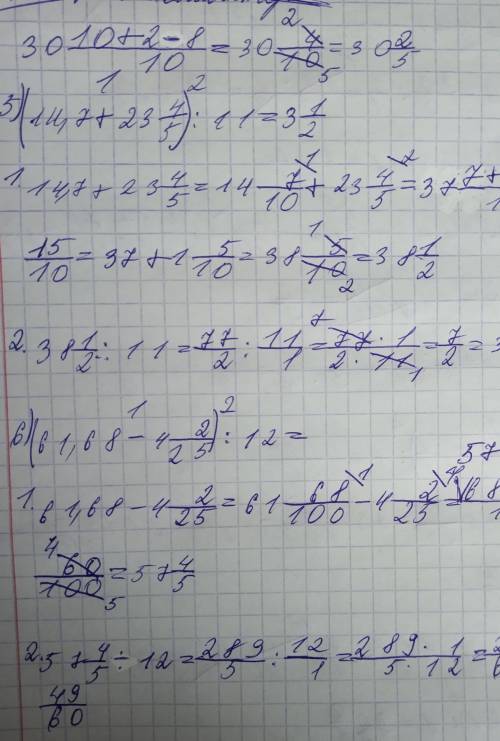 30 (10+2-8)/10 = 30 4/10 = 30 2/5
5) (14,7 + 23 4/5) : 11 = 3 1/2
1. 14,7 + 23 4/5 = 14 7/10 + 23 4/5 = 37 7+
15/10 = 37 + 1 5/10 = 38 5/10 = 38 1/2
2. 38 1/2 : 11 = 77/2 : 11/1 = 77·1/2·11 = 7/2 = 3
6) (61,68 - 4 2/25) : 12 =
57
1. 61,68 - 4 2/25 = 61 68/100 - 4 2/25 = 68
60/100 = 57 4/5
2. 57 4/5 ÷ 12 = 289/5 : 12/1 = 289·1/5·12 =
49/60